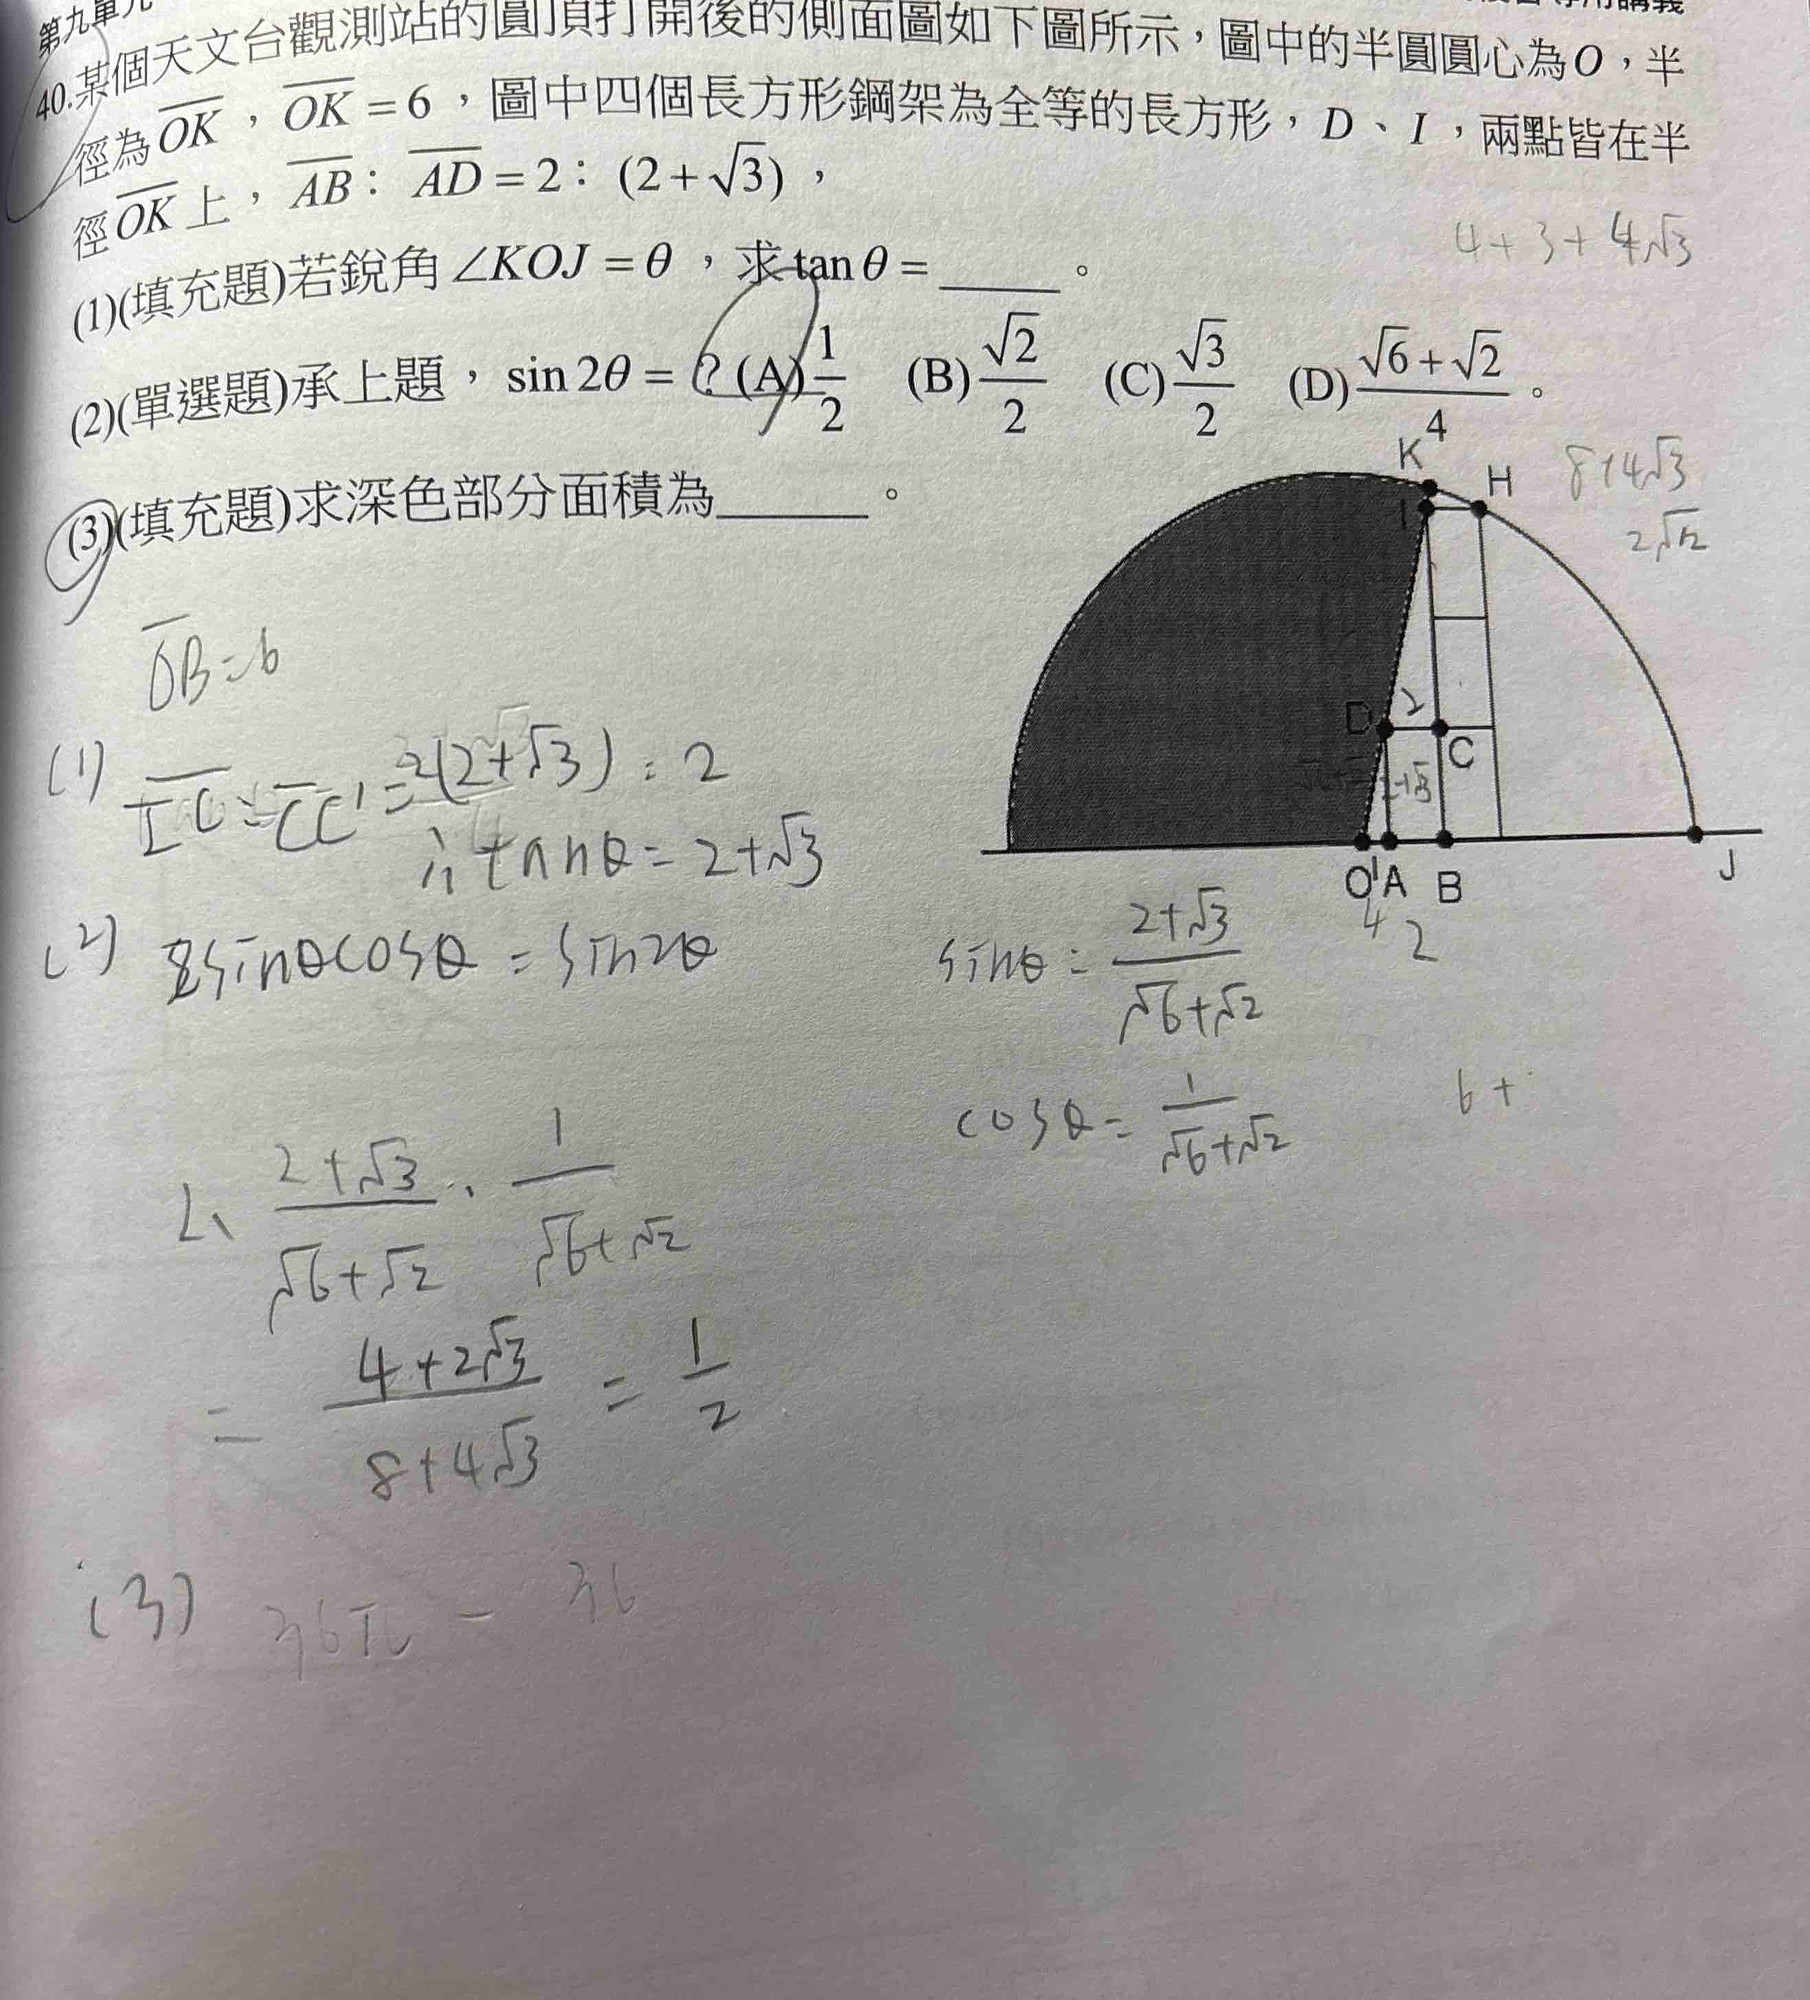 第九單元
40.某個天文台觀測站的圓頂打開後的側面圖如下圖所示，圖中的半圓圓心為O，半
徑為OK，OK=6，圖中四個長方形鋼架為全等的長方形，D、I，兩點皆在半
徑OK上，AB：AD=2：(2+√3)，
4+3+4√3
(1)(填充題)若銳角∠KOJ=θ，求tanθ=______。
(2)(單選題)承上題，sin2θ=？(A)1/2 (B)√2/2 (C)√3/2 (D)(√6+√2)/4。
(3)(填充題)求深色部分面積為______。
K
H
I
8+4√3
2√12
D
2
C
2+√3
O 1 A B
J
4 2
OB=6
(1) IC:CC'=2(2+√3):2
tanθ=2+√3
(2) 2sinθcosθ=sin2θ
sinθ=(2+√3)/(√6+√2)
cosθ=1/(√6+√2)
6+
2、(2+√3)/(√6+√2)·1/(√6+√2)
=(4+2√3)/(8+4√3)=1/2
(3) 36π-36